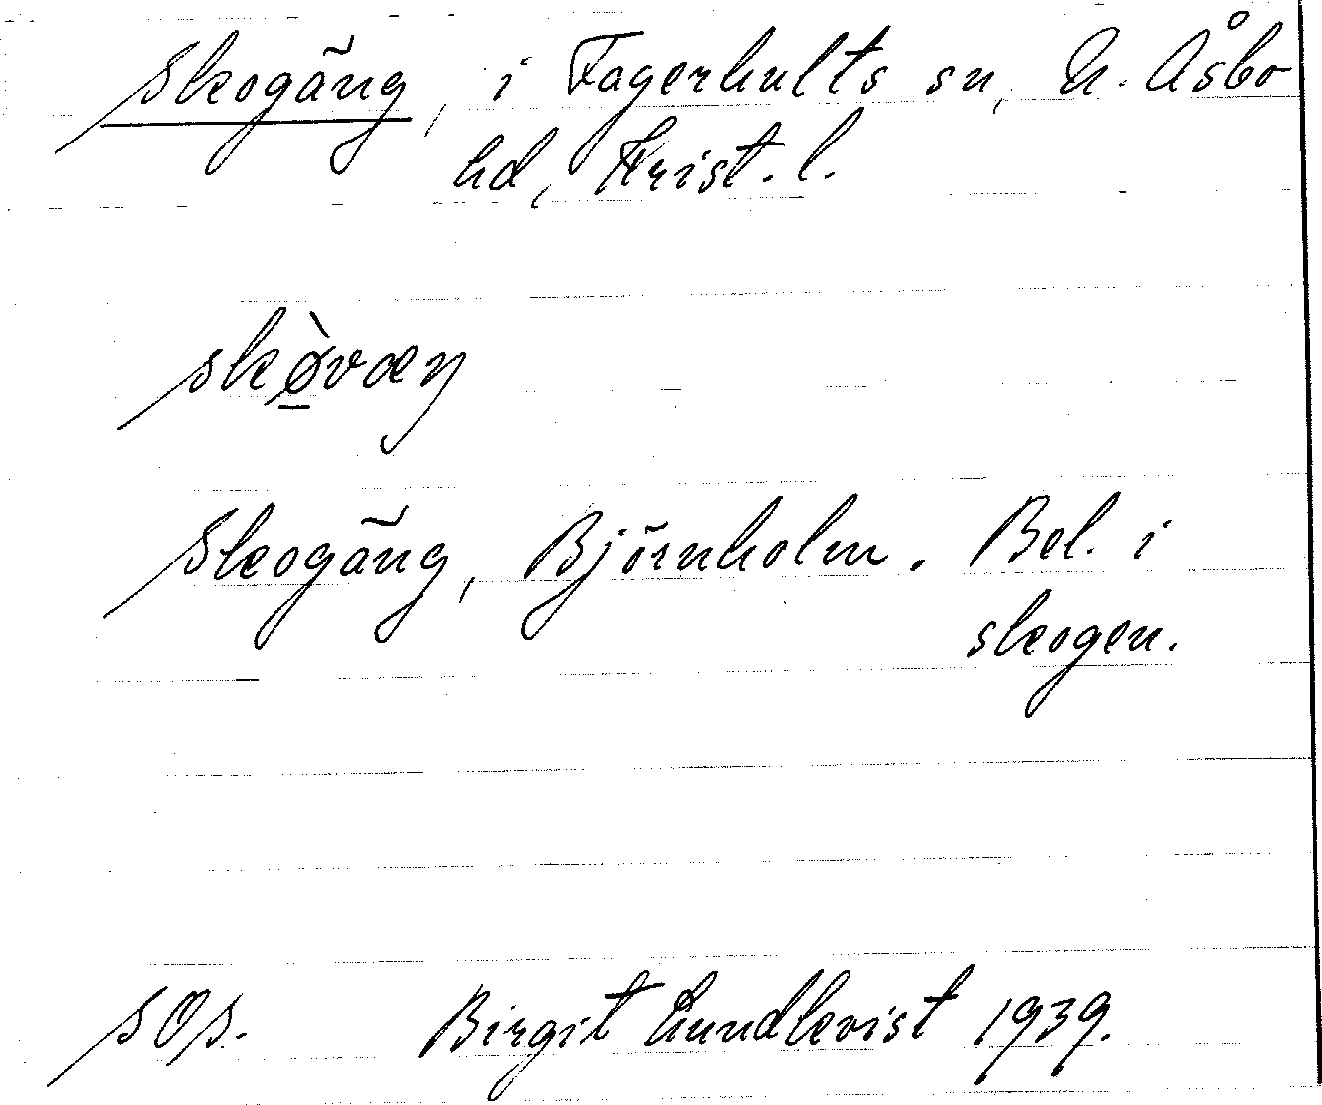 Skogäng, i Fagerhults sn, N. Åsbo
hd, Krist. l.
skø̠̀væŋ
Skogäng, Björnholm. Bel. i
skogen.
SOS. Birgit Lundkvist 1939.